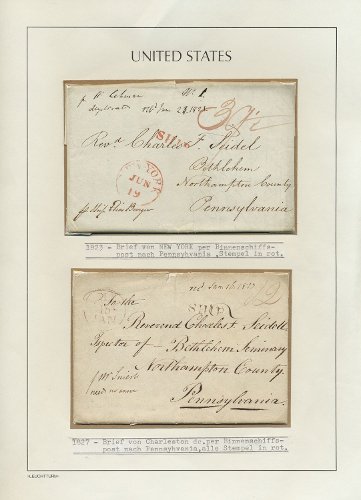 UNITED STATES
pr W. Lehman
No. 1.
duplicate recd Jun 21. 1823
SHIP
Revd Charles F. Seidel
Bethlehem
Northampton County
Pennsylvania
NEW YORK
JUN
19
pr Ship
1923 - Brief von NEW YORK per Binnenschiffs-
post nach Pennsylvania ,Stempel in rot.
recd Jan 16 1827
SHIP
12
To the
JAN
Reverend Charles F. Seidell
Inspector of Bethlehem Seminary
Northampton County.
Pennsylvania.
1827 - Brief von Charleston dc.per Binnenschiffs-
post nach Pennsylvania,alle Stempel in rot.
LEUCHTTURM